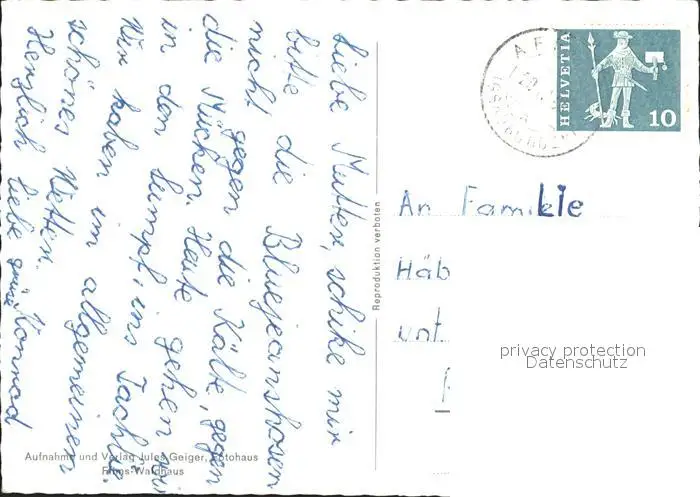 Liebe Mutter, schike mir
bitte die Bluejeanshosen
nicht gegen die Kälte, gegen
die Mücken. Heute gehen wir
in den Sumpf, ins
Wir haben im allgemeinen
schönes Wetter.
Herzlich liebe Konrad
Reproduktion verboten
Aufnahme und Verlag Jules Geiger, Fotohaus
Flims-Waldhaus
HELVETIA
10
An Familie
Häb
unt.
privacy protection
Datenschutz